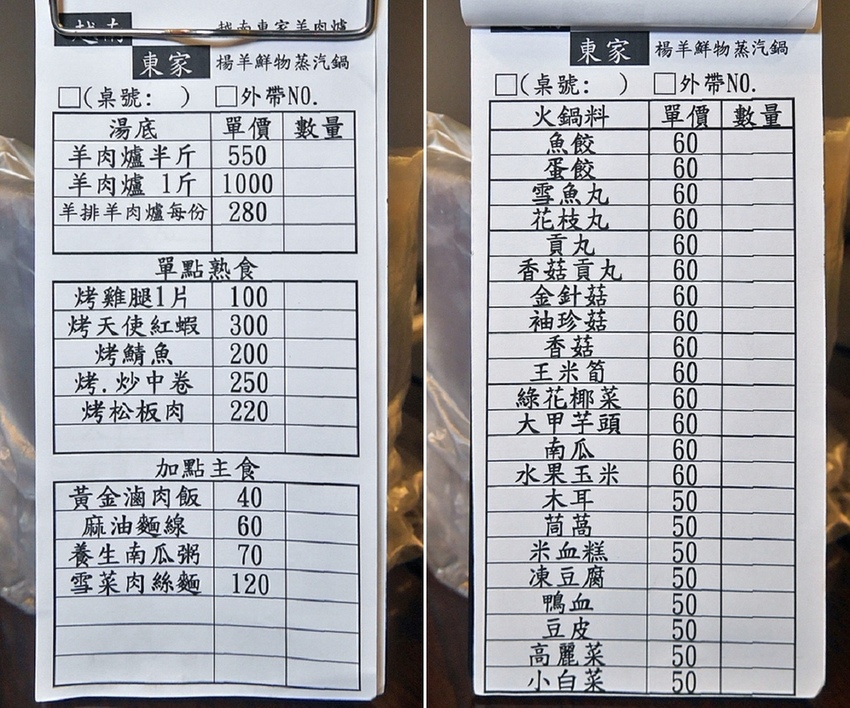 越南
越南東家羊肉爐
東家 楊羊鮮物蒸汽鍋
□(桌號: ) □外帶NO.
湯底 單價 數量
羊肉爐半斤 550
羊肉爐 1斤 1000
羊排羊肉爐每份 280
單點熟食
烤雞腿1片 100
烤天使紅蝦 300
烤鯖魚 200
烤.炒中卷 250
烤松板肉 220
加點主食
黃金滷肉飯 40
麻油麵線 60
養生南瓜粥 70
雪菜肉絲麵 120
東家 楊羊鮮物蒸汽鍋
□(桌號: ) □外帶NO.
火鍋料 單價 數量
魚餃 60
蛋餃 60
雪魚丸 60
花枝丸 60
貢丸 60
香菇貢丸 60
金針菇 60
袖珍菇 60
香菇 60
王米筍 60
綠花椰菜 60
大甲芋頭 60
南瓜 60
水果玉米 60
木耳 50
茼萵 50
米血糕 50
凍豆腐 50
鴨血 50
豆皮 50
高麗菜 50
小白菜 50